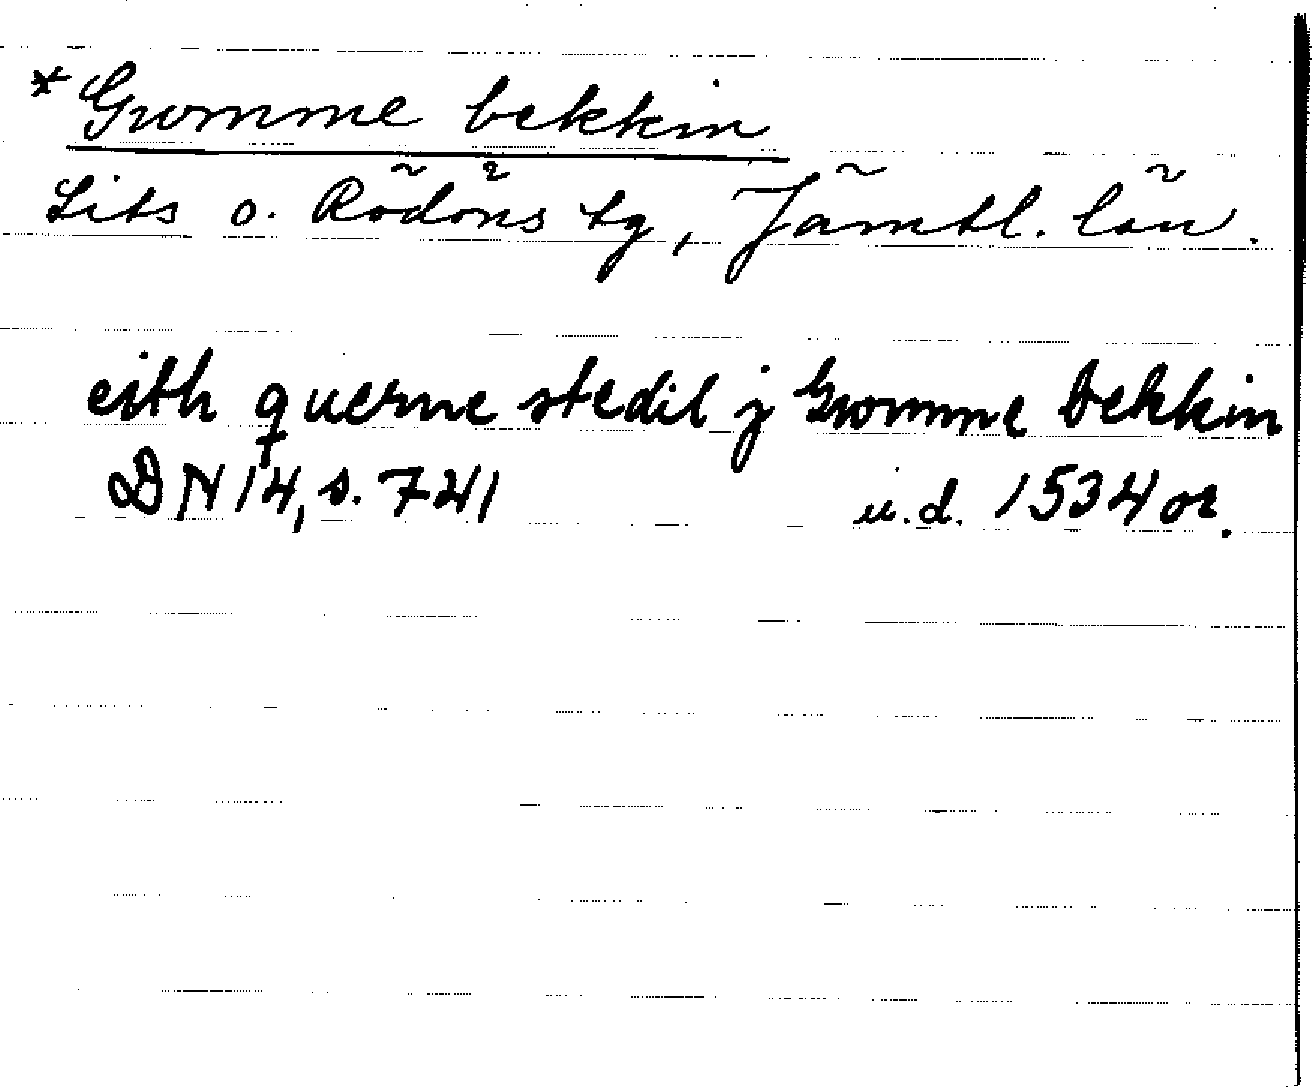 *Gromme bekkin
Lits o. Rödöns tg, Jämtl. län.
eith querne stedil j Gromme bekkin
DN 14, s. 741 u.d. 1534 or.